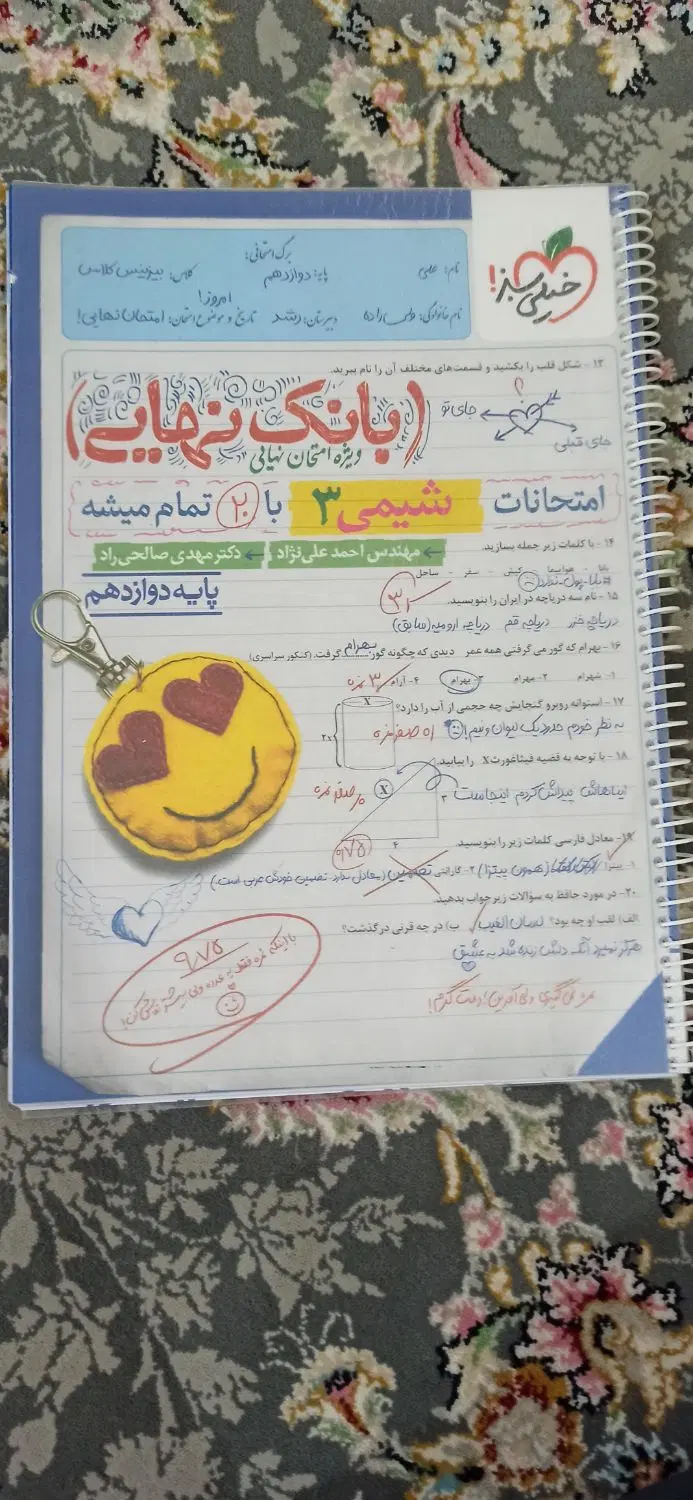 خیلی سبز!
برگ امتحانی:
نام: علی پایه: دوازدهم کلاس: بیزینس کلاس
امروز!
نام خانوادگی: دبیرستان: رشد تاریخ و موضوع امتحان: امتحان نهایی!
۱۳ - شکل قلب را بکشید و قسمت‌های مختلف آن را نام ببرید.
جای تو
جای قبلی
(بانک نهایی)
ویژه امتحان نهایی
امتحانات شیمی ۳ با ۲۰ تمام میشه
۱۴ - با کلمات زیر جمله بسازید.
مهندس احمد علی‌نژاد دکتر مهدی صالحی‌راد
بابا - هواپیما - کیش - سفر - ساحل
#بابا_پول_ندارد
پایه دوازدهم
۱۵ - نام سه دریاچه در ایران را بنویسید.
دریاچه خزر دریاچه قم دریاچه ارومیه (سابق)
۱۶ - بهرام که گور می‌گرفتی همه عمر دیدی که چگونه گور بهرام گرفت. (کنکور سراسری)
۱- شهرام ۲- مهرام ۳- بهرام ۴- آرام ۳ نمره
۱۷ - استوانه روبرو گنجایش چه حجمی از آب را دارد؟
X
۲X
به نظر خودم حدود یک لیوان و نیم!
۱۸ - با توجه به قضیه فیثاغورث X را بیابید.
ایناهاش پیداش کردم اینجاست
X
۳
۴
۹/۷۵
۱۹ - معادل فارسی کلمات زیر را بنویسید.
۱- پیتزا (همون پیتزا) ۲- گارانتی تضمین (معادل ندارد تضمین خودش عربی است.)
۲۰ - در مورد حافظ به سؤالات زیر جواب بدهید.
الف) لقب او چه بود؟ لسان الغیب ب) در چه قرنی در گذشت؟
هرگز نمیرد آنکه دلش زنده شد به عشق
نمره نمی‌گیری ولی آفرین! دمت گرم!
۹/۷۵
با اینکه نمره فقط یه عدده ولی بیشتر تلاش کن!